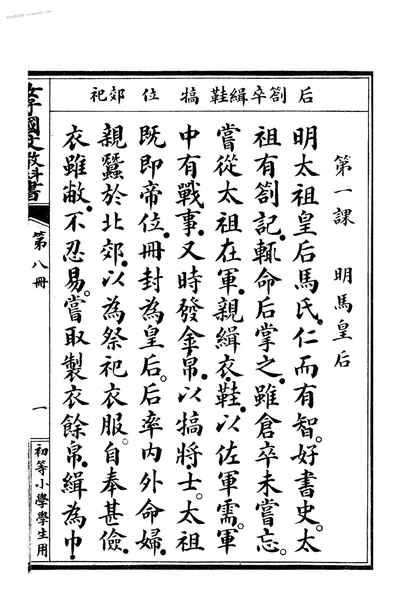 后 劄 卒 緝 鞋 犒 位 郊 祀
第一課 明馬皇后
明太祖皇后馬氏。仁而有智。好書史。太
祖有劄記。輒命后掌之。雖倉卒未嘗忘。
嘗從太祖在軍。親緝衣鞋。以佐軍需。軍
中有戰事。又時發金帛。以犒將士。太祖
既即帝位。冊封為皇后。后率內外命婦。
親蠶於北郊。以為祭祀衣服。自奉甚儉。
衣雖敝。不忍易。嘗取製衣餘帛。緝為巾
女子國文教科書
第八冊
一
初等小學學生用